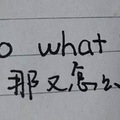 o what
那又怎么